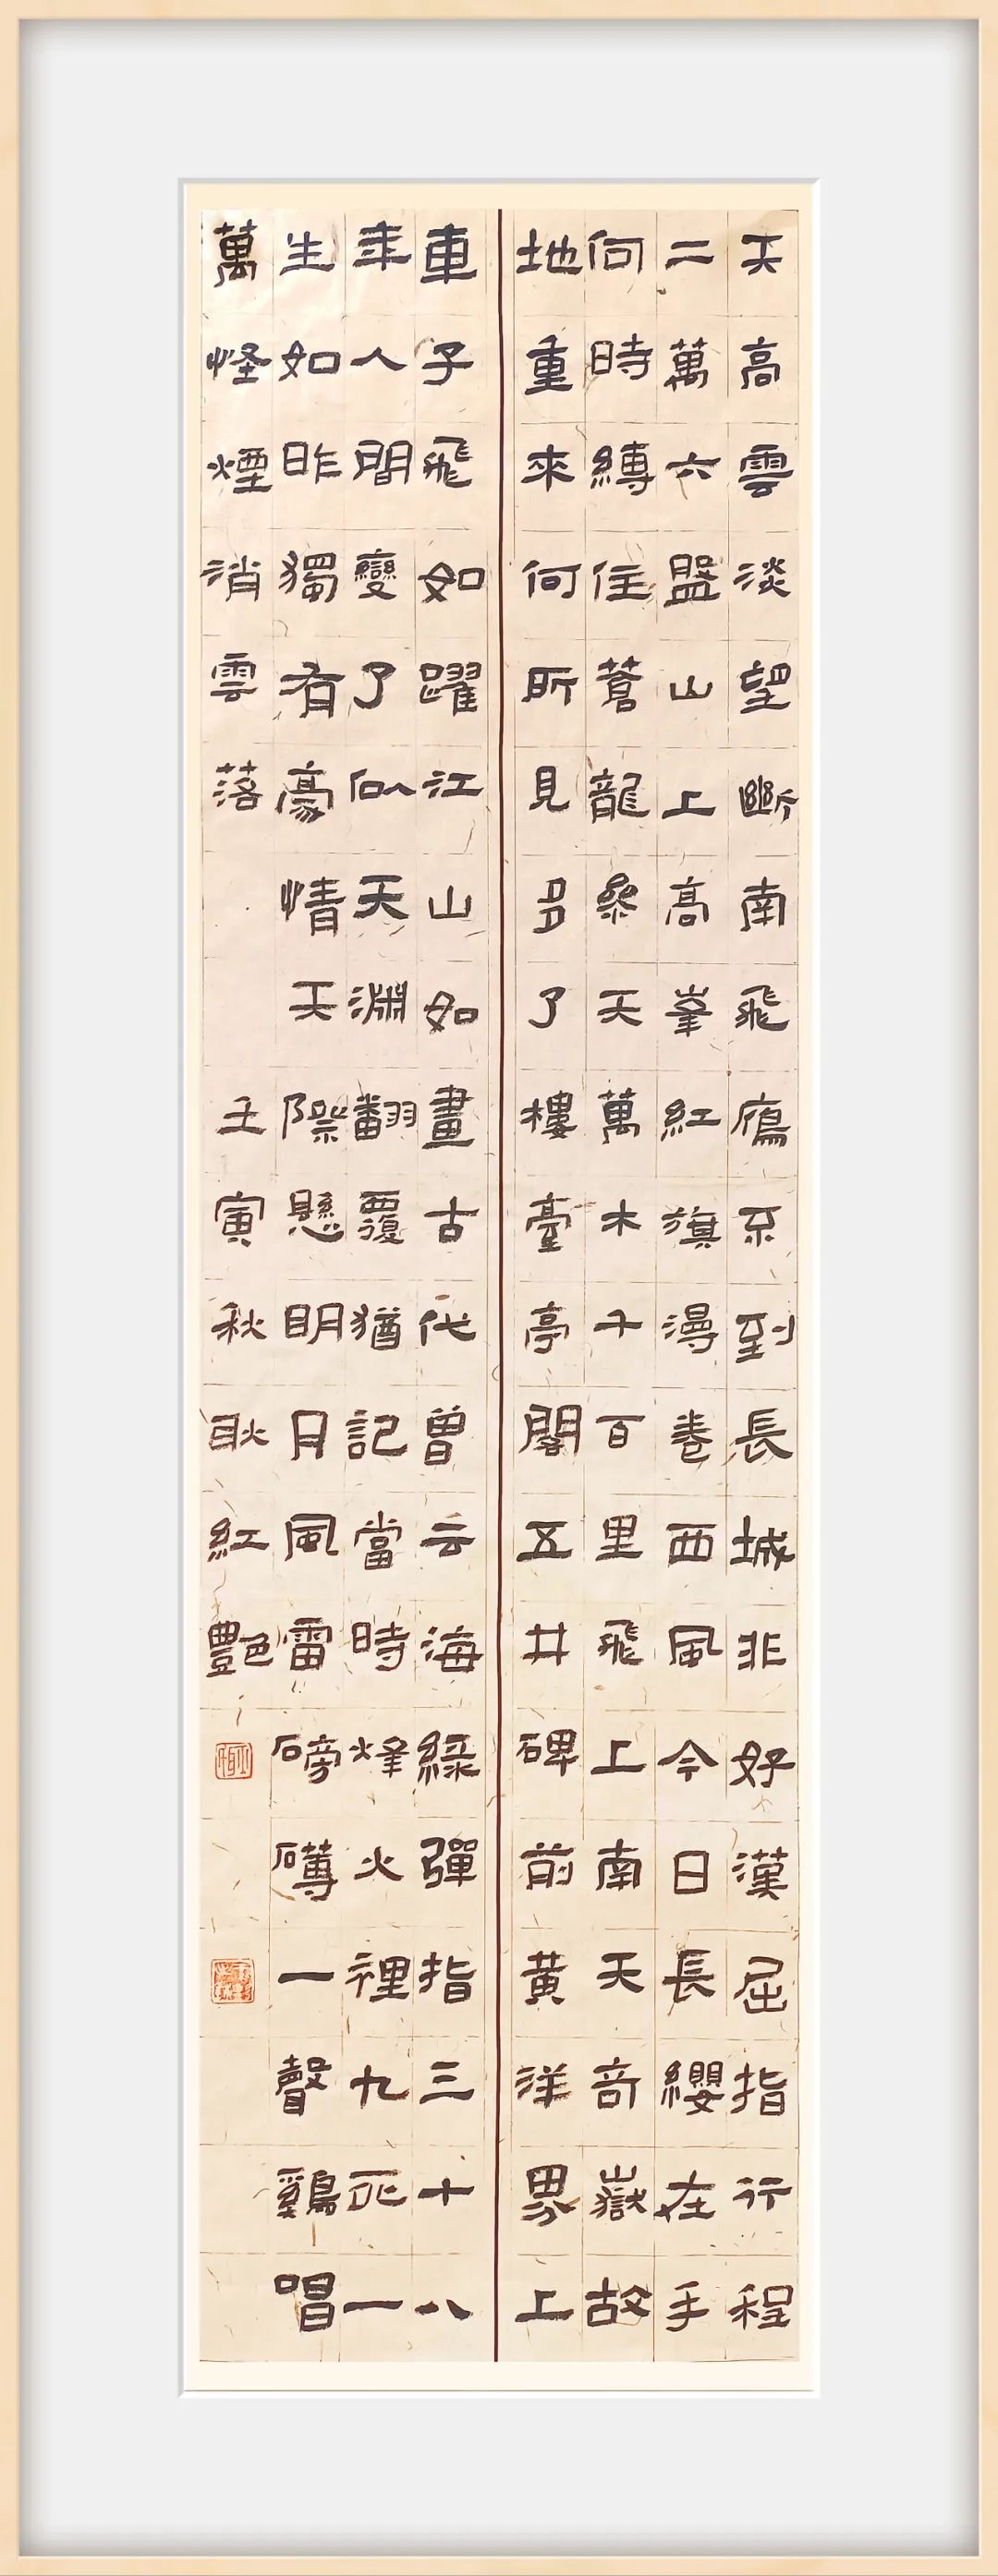 天高雲淡望斷南飛鴈不到長城非好漢屈指行程
二萬六盤山上高峯紅旗漫卷西風今日長纓在手
何時縛住蒼龍叅天萬木千百里飛上南天奇嶽故
地重來何所見多了樓臺亭閣五井碑前黃洋界上
車子飛如躍江山如畫古代曾云海綠彈指三十八
年人間變了似天淵翻覆猶記當時烽火裡九死一
生如昨獨有豪情天際懸明月風雷磅礴一聲鷄唱
萬怪煙消雲落
壬寅秋耿紅艷